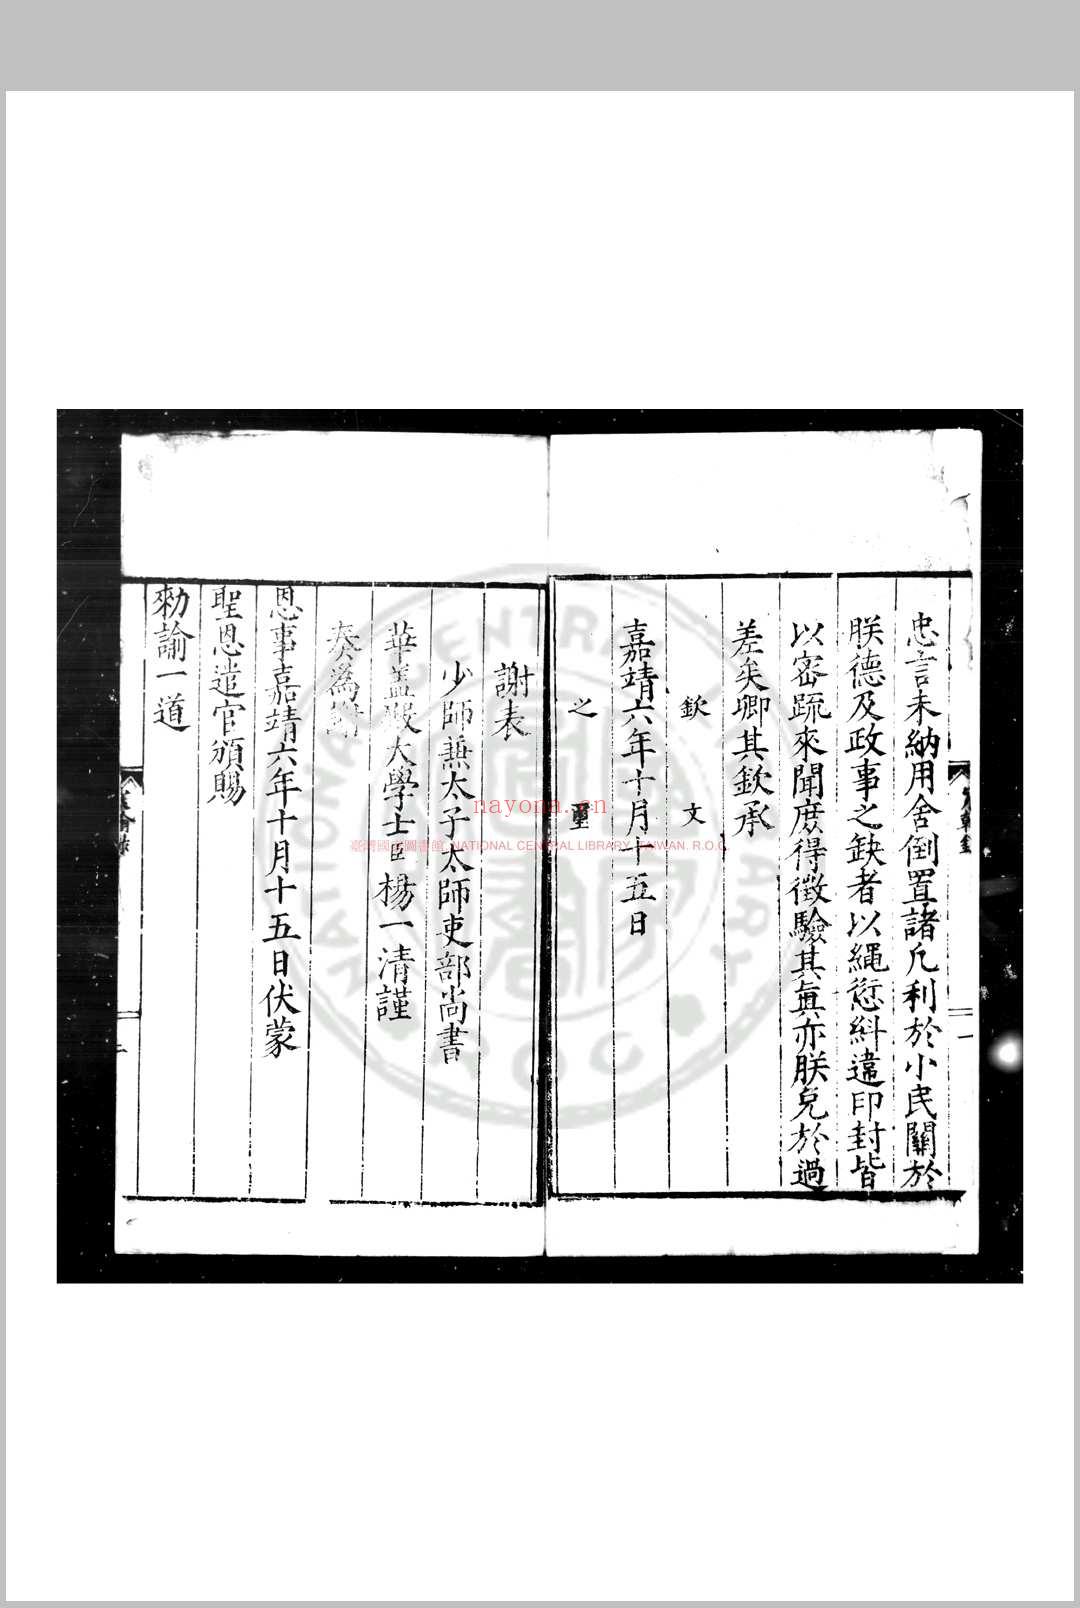 忠言未納用舍倒置諸凡利於小民關於
朕德及政事之缺者以繩愆糾違印封皆
以密疏來聞庶得徵驗其眞亦朕免於過
差矣卿其欽承
欽文
嘉靖六年十月十五日
之璽
謝表
少師兼太子太師吏部尚書
華盖殿大學士臣楊一清謹
奏爲謝
恩事嘉靖六年十月十五日伏蒙
聖恩遣官頒賜
勑諭一道
nayona.cn
臺灣國家圖書館 NATIONAL CENTRAL LIBRARY, TAIWAN. R.O.C.
NATIONAL CENTRAL LIBRARY
ROC